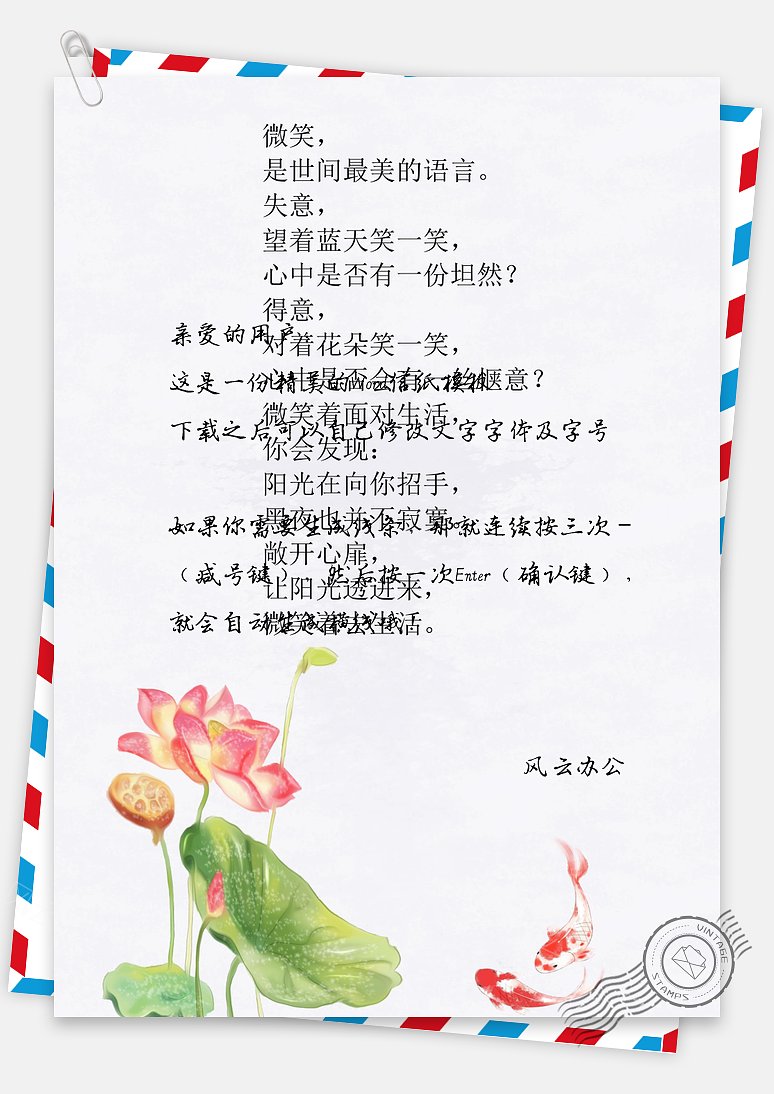 微笑，
是世间最美的语言。
失意，
望着蓝天笑一笑，
心中是否有一份坦然？
得意，
对着花朵笑一笑，
心中是否会有一丝惬意？
微笑着面对生活，
你会发现：
阳光在向你招手，
黑夜也并不寂寞。
敞开心扉，
让阳光透进来，
微笑着去生活。
亲爱的用户
这是一份精美的Word信纸模板
下载之后可以自己修改文字字体及字号
如果你需要生成线条，那就连续按三次-
（减号键），然后按一次Enter（确认键），
就会自动生成横线哦
风云办公
VINTAGE
STAMPS